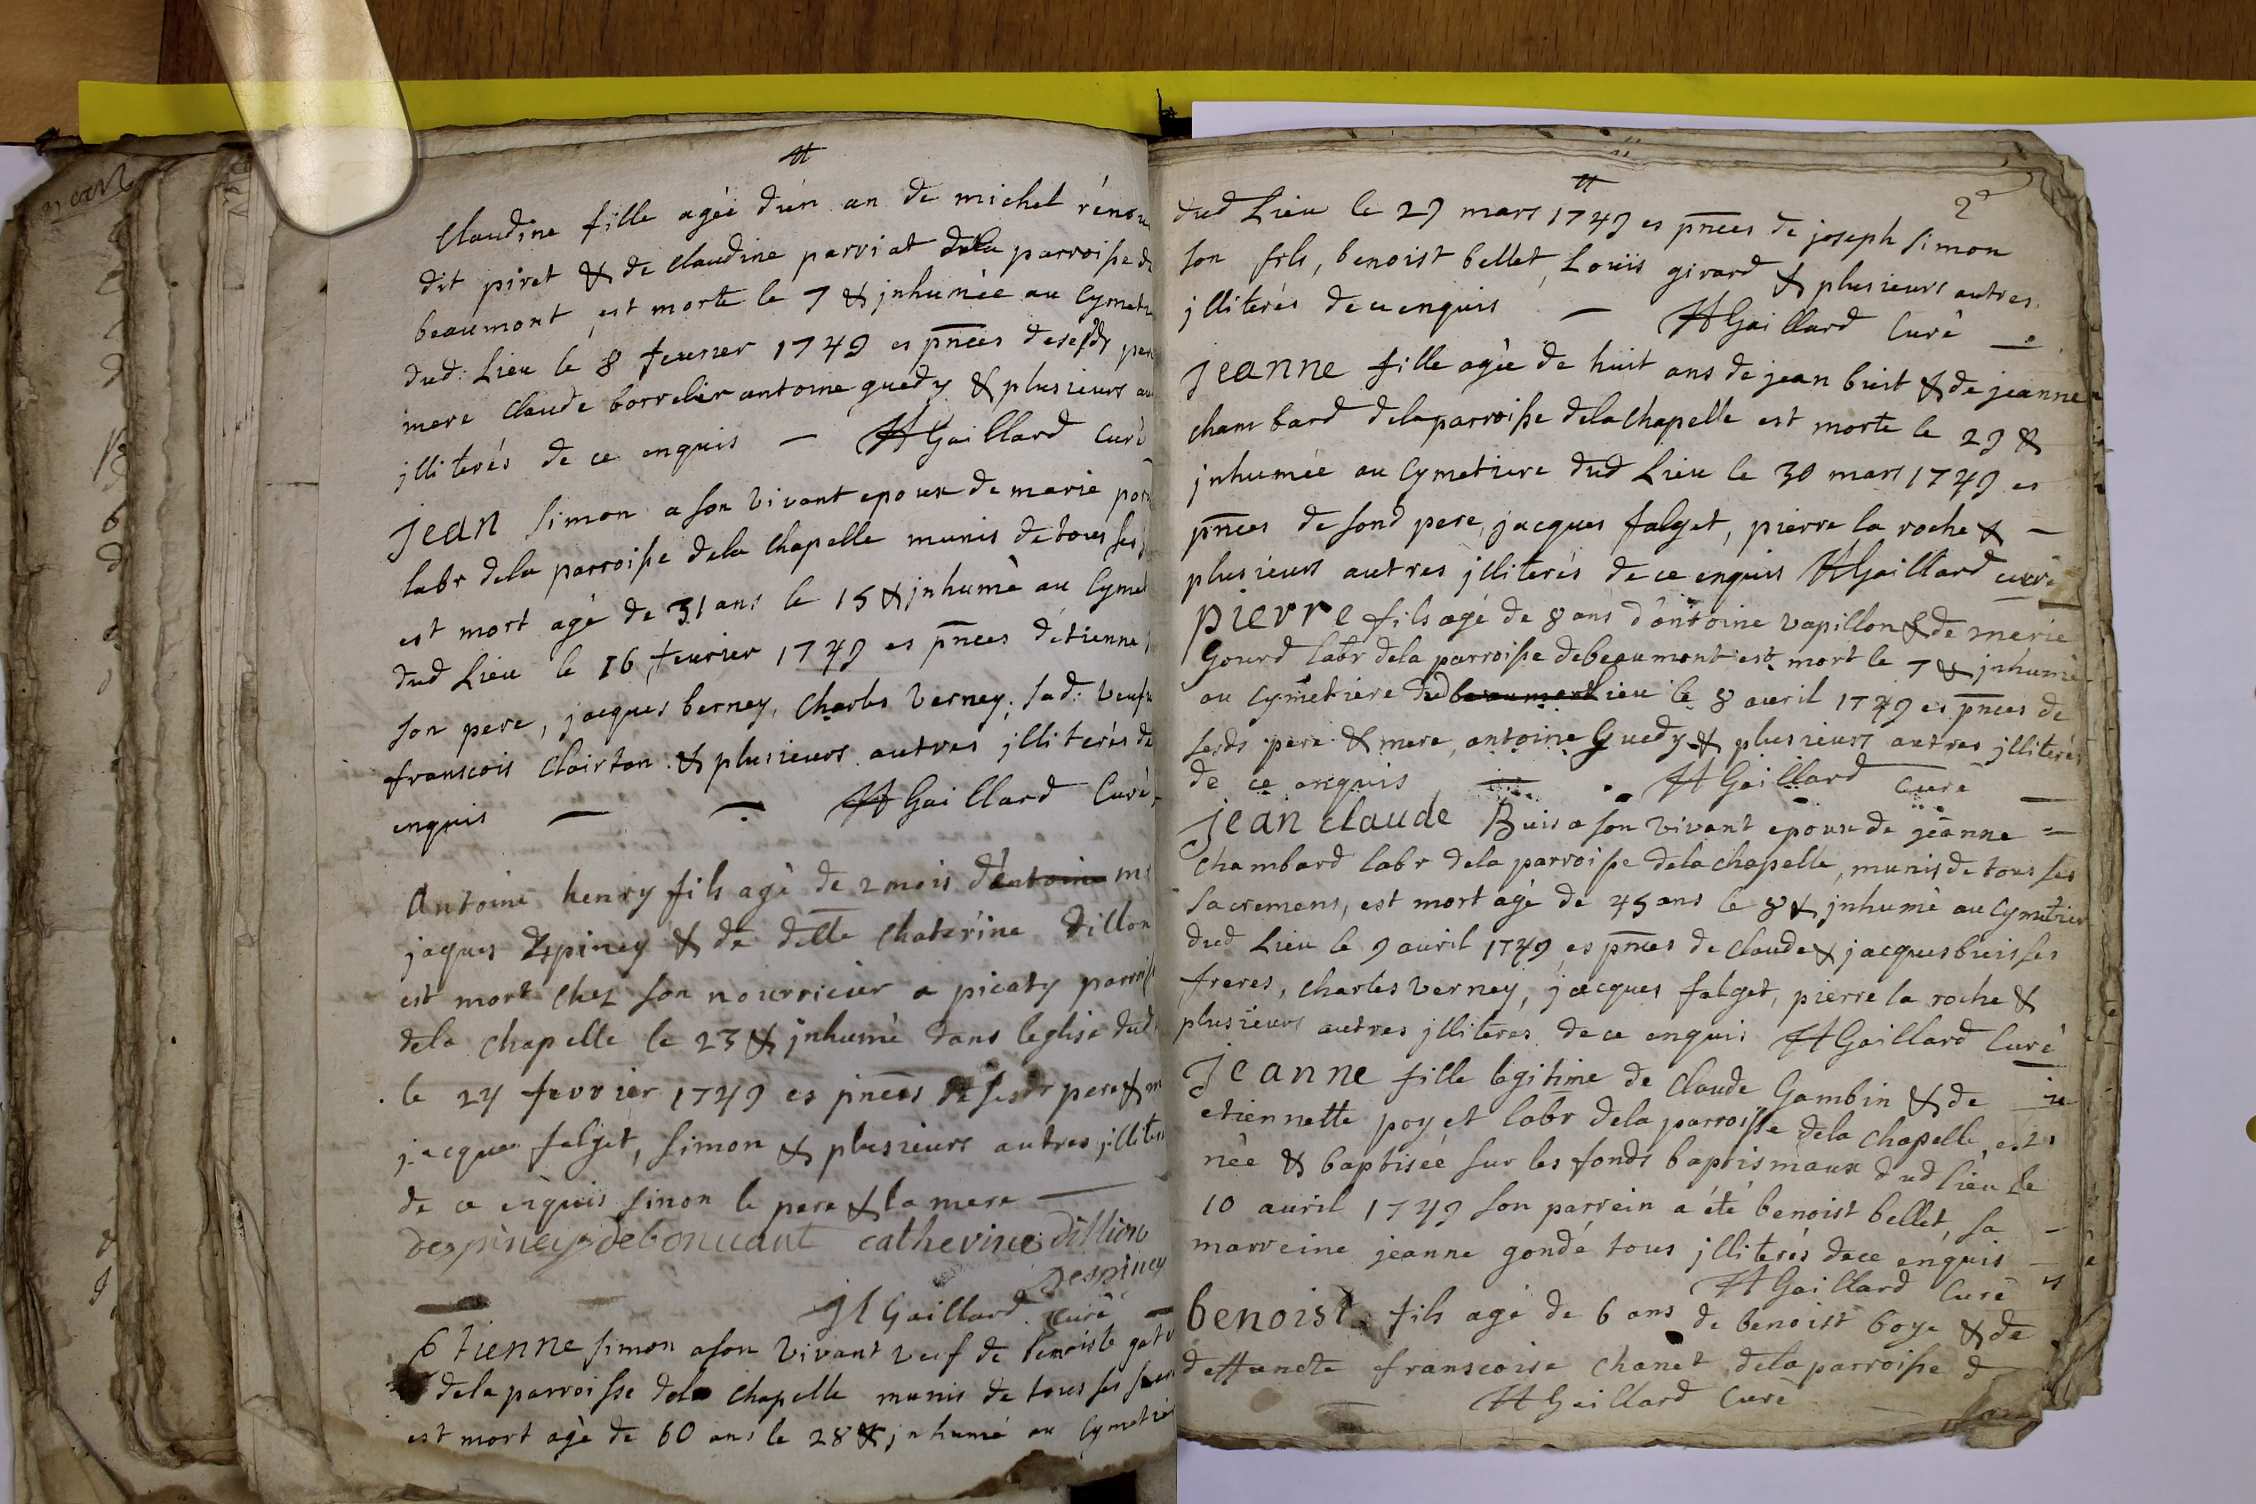 Claudine fille agèe d'ün an de michel rénou
dit piret & de claudine parriat dela parroisse de
beaumont, est morte le 7 & jnhumèe au Cymet
dud: Lieu le 8 feurier 1749 es pn̄ces desesds per
mere claude borrelier antoine guedy & plusieurs au
jlliterés de ce enquis — HGaillard Curè
jean simon a son vivant epoux de marie
labr dela parroisse dela chapelle munis de tous ses
est mort agè de 31 ans le 15 & jnhumè au Cymet
dud Lieu le 16 feurier 1749 es pn̄ces détienne
son pere, jacques berney, Charles Verney, sad: veufu
franscois Clairton & plusieurs autres jlliterés de
enquis — — HGaillard Curè
Antoine henry fils agè de 2 mois d'antoine
jaques Despiney & de delle Chaterine Dillon
est mort Chez son nourricier a picaty parroiss
dela Chapelle le 23 & jnhumè dans leglise dud
le 24 fevrier 1749 es pn̄ces de sesds pere & m
jacques falget, simon & plusieurs autres jlliter
de ce enquis sinon le pere & la mere —
despiney debonuant catherine dillion
Despiney
HGaillard Curè
Etienne simon a son Vivant veuf de benoiste
dela parroisse dela Chapelle munis de tous ses sacr
est mort agè de 60 ans le 28 & jnhumé au Cymetie
2e
dud Lieu le 29 mars 1749 es pn̄ces de joseph simon
son fils, benoist bellet, Louis girard & plusieurs autres
jlliterés de ce enquis — HGaillard Curè —
jeanne fille agèe de huit ans de jean buit & de jeanne
chambard dela parroisse dela Chapelle est morte le 29 &
jnhumée au Cymetiere dud Lieu le 30 mars 1749 es
pn̄ces de sond pere, jacques falget, pierre la roche & —
plusieurs autres jlliterés de ce enquis HGaillard curè
pierre fils agé de 8 ans d'antoine vapillon & de merie
Gourd labr dela parroisse debeaumont est mort le 7 & jnhumè
au Cymetiere dud beaumont ieu le 8 auril 1749 es pn̄ces de
sesds pere & mere, antoine Guedy & plusieurs autres jlliterés
de ce enquis — HGaillard Curè —
jean claude Buis a son vivant epoux de jeanne =
Chambard labr dela parroisse dela chapelle, munis de tous ses
sacremens, est mort agè de 45 ans le 8 & jnhumè au Cymetier
dud Lieu le 9 auril 1749, es pn̄ces de claude & jacques buis ses
freres, charles Verney, jacques falget, pierre la roche &
plusieurs autres jlliterés de ce enquis HGaillard Curè
jeanne fille legitime de Claude Gambin & de
etiennette poyet labr dela parroisse dela Chapelle, est
née & baptisée sur les fonds baptismaux dud lieu le
10 auril 1749 son parrein a été benoist bellet, sa —
marreine jeanne gondé tous jlliterés dece enquis —
HGaillard Curè
benoist fils agé de 6 ans de benoist boye & de
deffuncte franscoise Chanet dela parroisse d
HGaillard Curè